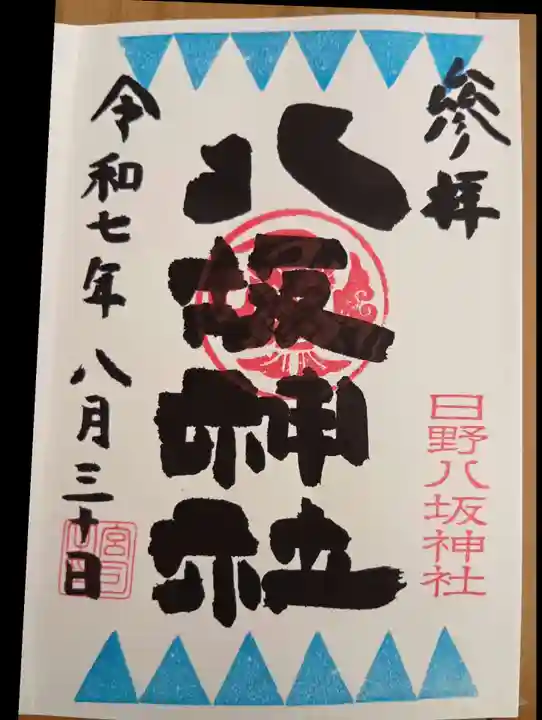 参拝
日野八坂神社
八坂神社
令和七年八月三十日